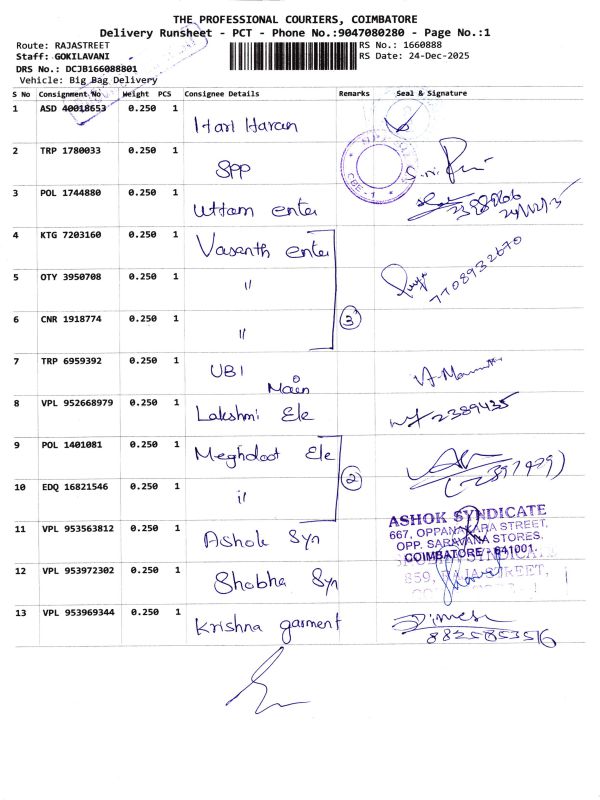 THE PROFESSIONAL COURIERS, COIMBATORE
Delivery Runsheet - PCT - Phone No.:9047080280 - Page No.:1
Route: RAJASTREET RS No.: 1660888
Staff: GOKILAVANI RS Date: 24-Dec-2025
DRS No.: DCJB166088801
Vehicle: Big Bag Delivery
S No Consignment No Weight PCS Consignee Details Remarks Seal & Signature
1 ASD 40018653 0.250 1 Hari Haran
2 TRP 1780033 0.250 1 SPP
CBE-1
3 POL 1744880 0.250 1 Uttam enter
4 KTG 7203160 0.250 1 Vasanth enter
5 OTY 3950708 0.250 1 " 7708932670
6 CNR 1918774 0.250 1 " 3
7 TRP 6959392 0.250 1 UBI Main
8 VPL 952668979 0.250 1 Lakshmi Ele 2389435
9 POL 1401081 0.250 1 Meghdoot Ele
10 EDQ 16821546 0.250 1 " 2
11 VPL 953563812 0.250 1 Ashok Syn
ASHOK SYNDICATE
667, OPPANAKARA STREET,
OPP. SARAVANA STORES,
COIMBATORE - 641001.
12 VPL 953972302 0.250 1 Shobha Syn
859, RAJA STREET,
13 VPL 953969344 0.250 1 Krishna garment Dinesh
8825853516